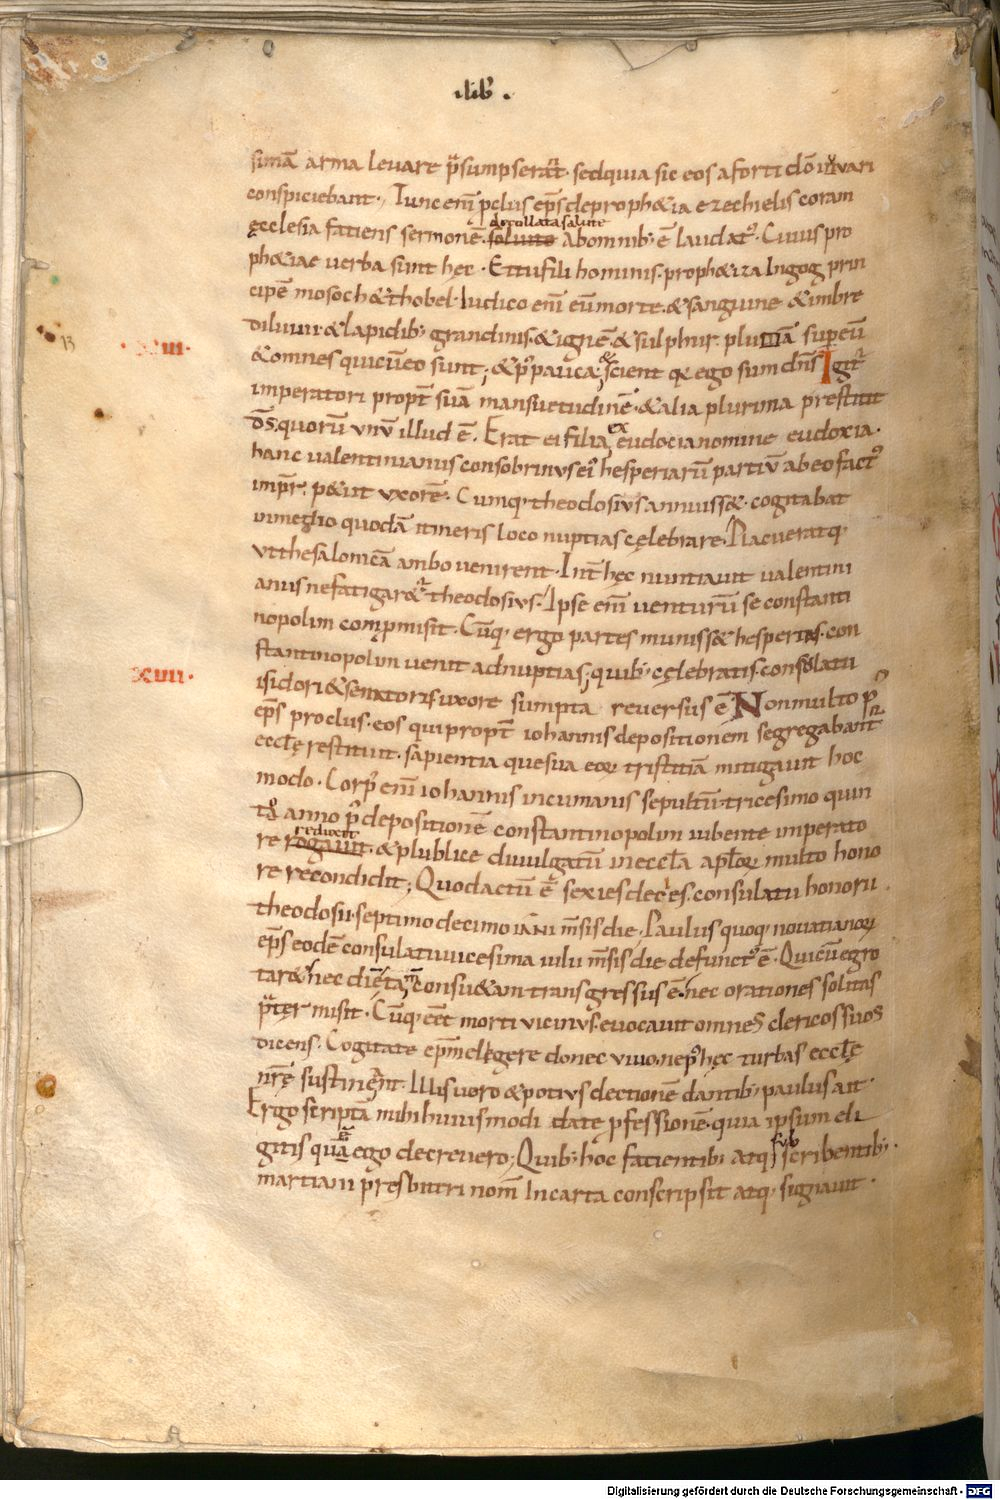 ·lib̄·
simā arma leuare p̄sumpserat̄. sedquia sic eos aforti dō iuvari
conspiciebant·, Tunc enī p̄clus ep̄s deproph&ia ezechielis coram
decollata salute
ęcclesia faciens sermonē. solute abomnib; ē laudat᷒. Cuius pro
ph&iae uerba sunt hęc · Ettufili hominis. proph&iza Ingog prin
cipē mosoch & thobel. Iudico enī eū morte. & sanguine & imbre
Diluuii. & lapidib; grandinis. & ignē. & sulphur. pluam supeū
XVI·
& omnes quicūeo sunt; & p᷒pauca, & scient qr ego sum dn̄s Igit᷒
imperatori propt̄ suā mansuetudinē. & alia plurima prestitit
D̄s. quorū unū illud ē. Erat ei filia, ex eudocia nomine eudoxia.
hanc ualentinianus consobrinus ei᷒ hesperiarū partiū abeo fact᷒
imp̄r. p&iit uxorē. Cumq; theodosius annuiss&. cogitabat
inmedio quodā itineris loco nuptias cęlebrare. Placueratq;
utthesalonicā ambo uenirent. Int̄ hęc nuntiauit ualentini
anus nefatigar&᷒ theodosius. Ipse enī uenturū se constanti
nopolim compmisit. Cūq; ergo partes muniss& hesperias. con
stantinopolim uenit adnuptias; quib; cęlebratis. consolatu
XVII·
isidori & senatoris uxore sumpta reuersus ē Nonmulto p᷒
ep̄s proclus. eos qui propt̄ iohannis depositionem segregabant᷒
eccl̄ę restituit. sapientia quesua eoꝝ tristitiā mitigauit hoc
modo. Corp᷒ enī iohannis incumanis sepultū. tricesimo quin
to anno p᷒ depositionē constantinopolim iubente imperato
reducit
re rogauit. & plublice diuulgatū ineccl̄a apl̄oꝝ multo hono
re recondidit; Quodactū ē sexiesdecies. consulatu honorii.
theodosii. septimo decimo IANI m̄sis die. Paulus quoq; nouatianoꝝ
ep̄s eodē consulatu uicesima iulii m̄sis die defunct᷒ ē. Quicū egro
tar& nec diētā, consu&am transgressus ē. nec orationes solitas
p̄ter misit. Cūq; eēt morti uicinus. euocauit omnes clericos suos
dicens. Cogitate ep̄m elegere donec uiuo. nep᷒ hęc turbas eccl̄ę
nr̄ę sustineant. Illis uoro & potius electionē dantib; paulus ait.
Ergo scriptā mihi huiusmodi date p̄fessionē. quia ipsum eli
gitis quā ego decreuero; Quib; hoc facientib; atq; sub scribentib;.
martiani presbiteri nom̄ Incarta conscripsit atq; signauit.
13
Digitalisierung gefördert durch die Deutsche Forschungsgemeinschaft - DFG